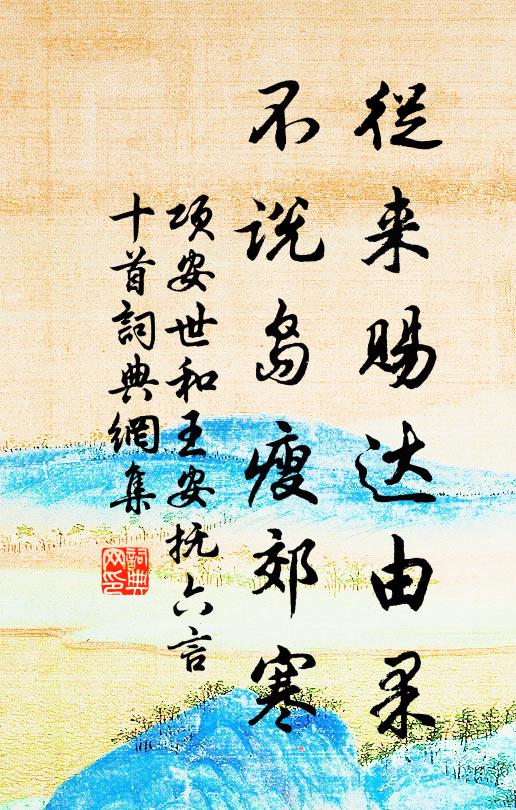 從来賜达由果
不说岛瘦郊寒
项安世和王安抚六言
十首詞典網集
詞典网印